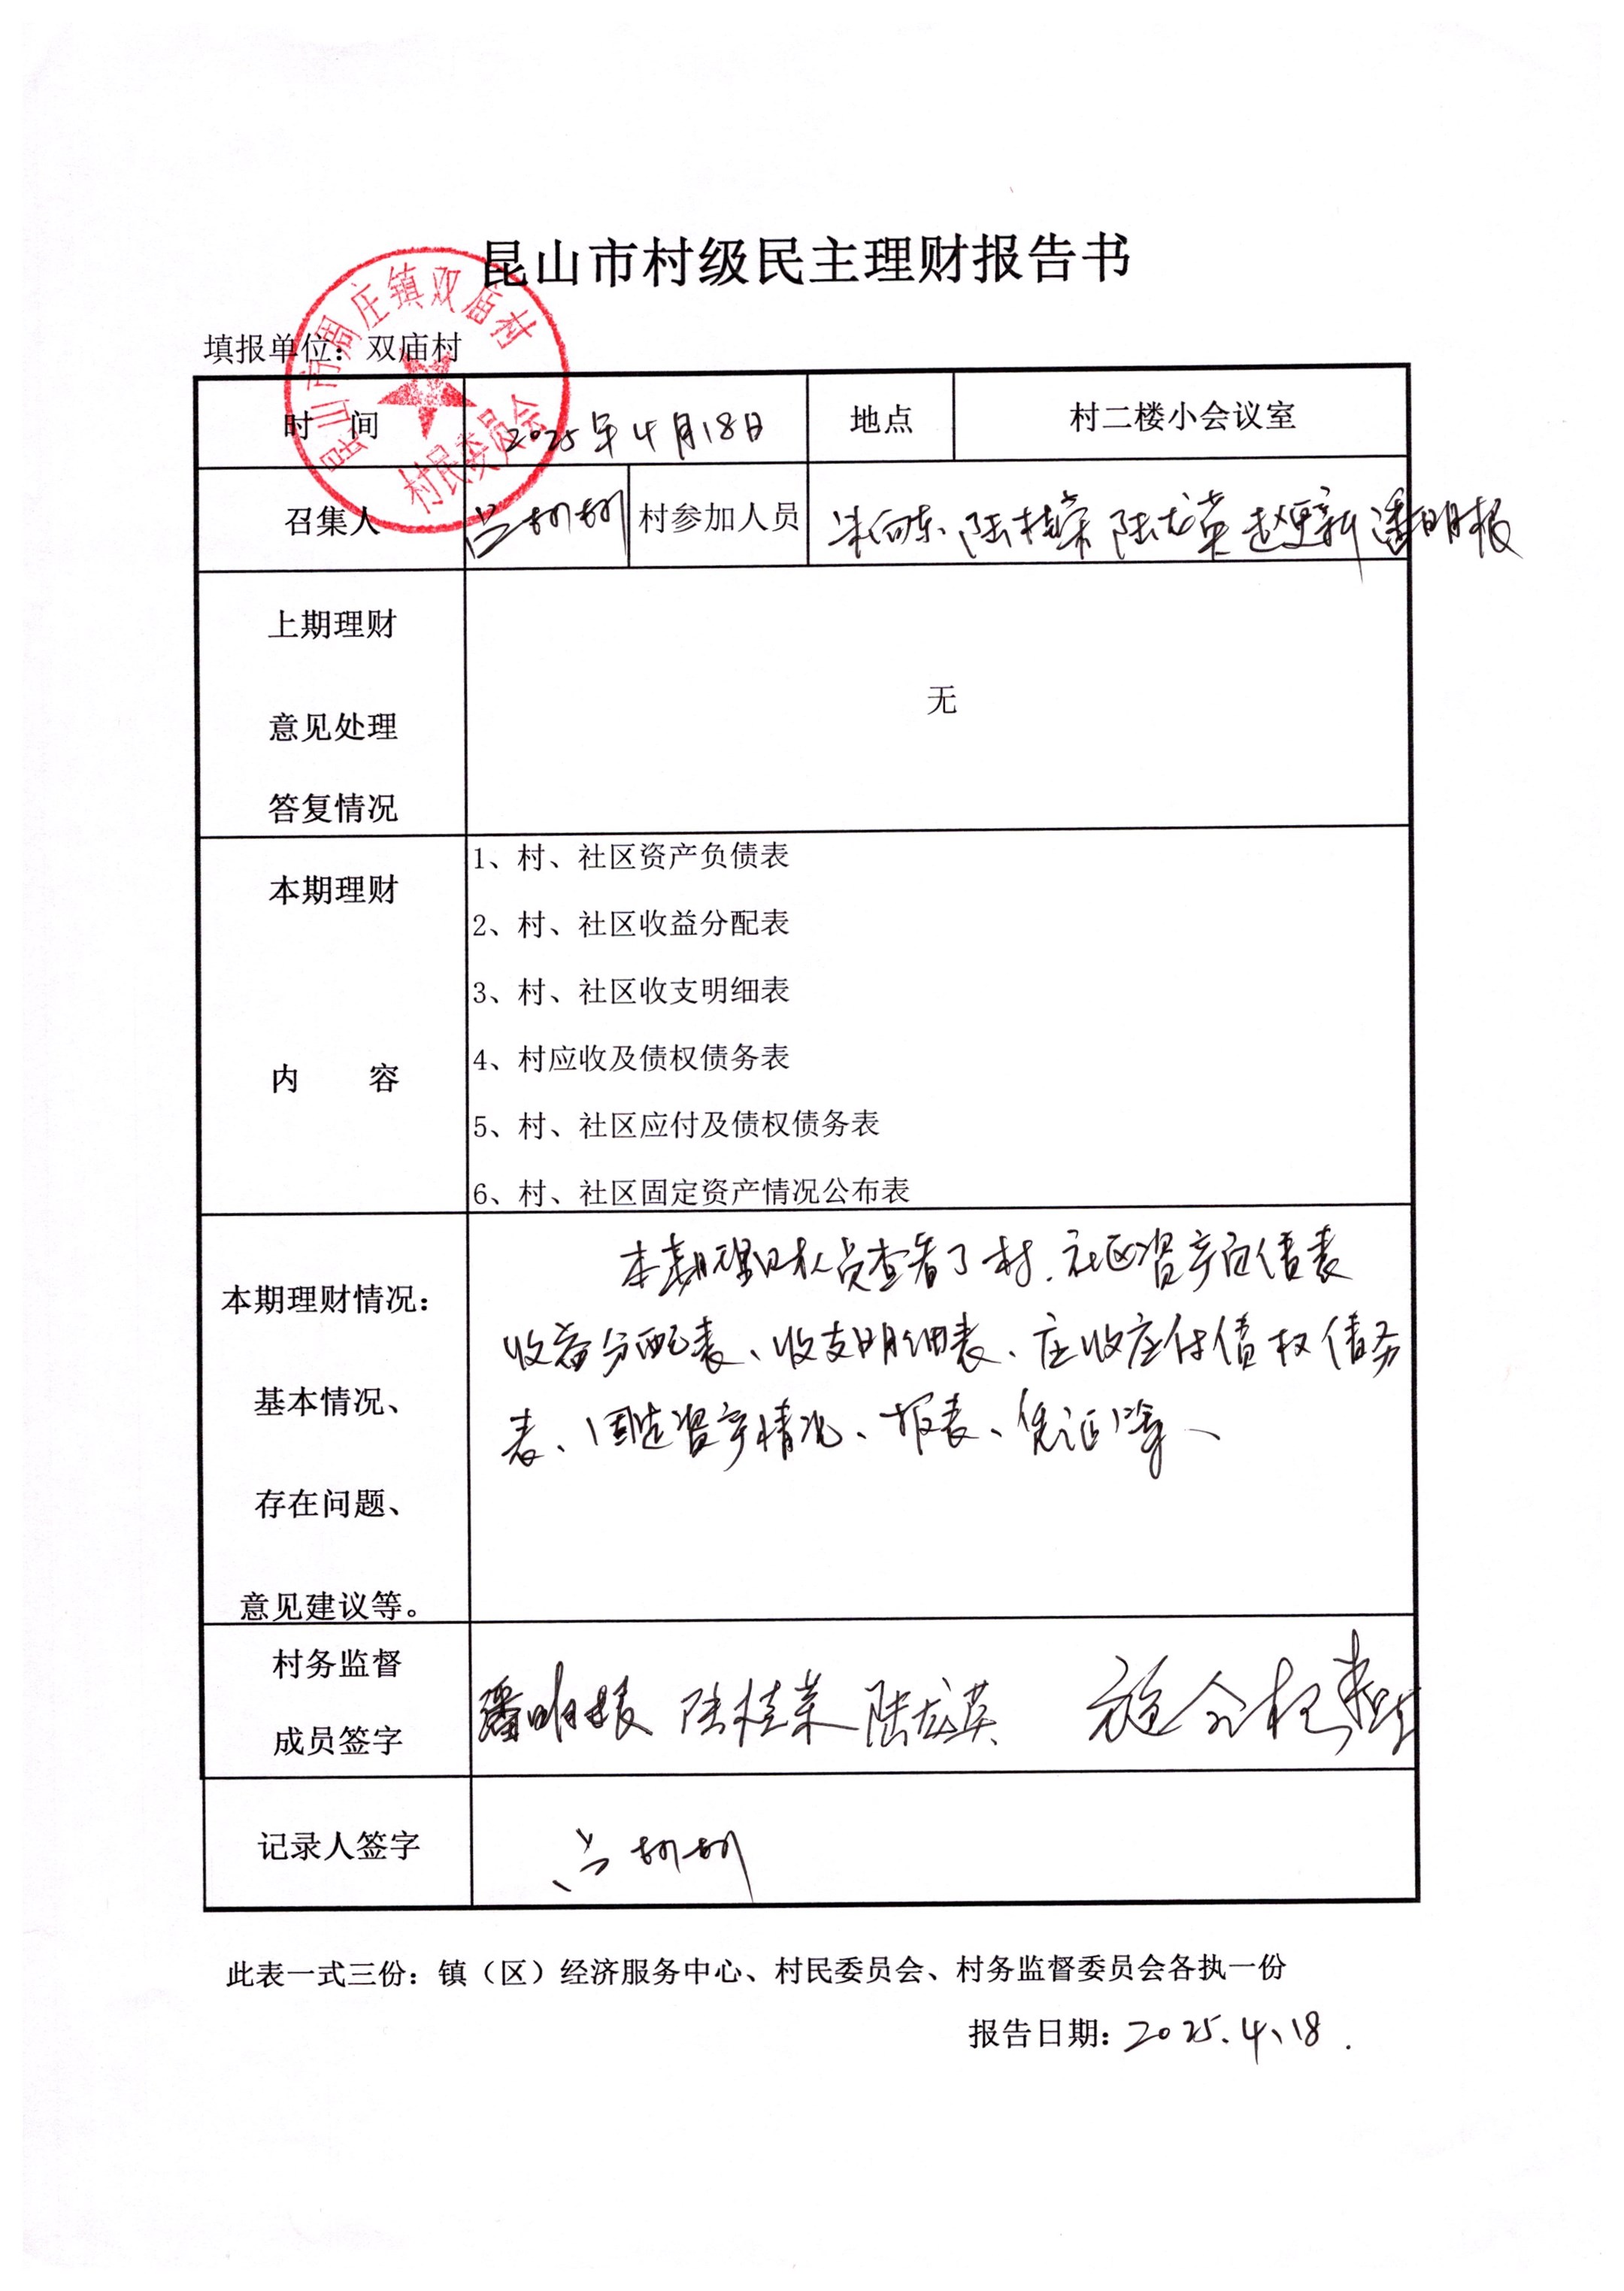 昆山市村级民主理财报告书
昆山市周庄镇双庙村
村民委员会
填报单位：双庙村
时 间 2025年4月18日 地点 村二楼小会议室
召集人 村参加人员 朱向东 陆桂荣 陆龙英 赵更新 潘明根
上期理财
意见处理
答复情况
无
本期理财
内 容
1、村、社区资产负债表
2、村、社区收益分配表
3、村、社区收支明细表
4、村应收及债权债务表
5、村、社区应付及债权债务表
6、村、社区固定资产情况公布表
本期理财情况：
基本情况、
存在问题、
意见建议等。
本期理财人员查看了村、社区资产负债表
收益分配表、收支明细表、应收应付债权债务
表、固定资产情况、报表、凭证等、
村务监督
成员签字
潘明根 陆桂荣 陆龙英
记录人签字
此表一式三份：镇（区）经济服务中心、村民委员会、村务监督委员会各执一份
报告日期：2025.4.18.